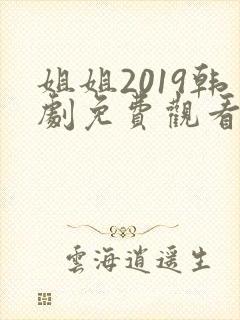 姐姐2019韩
劇免費觀看
雲海逍遥生